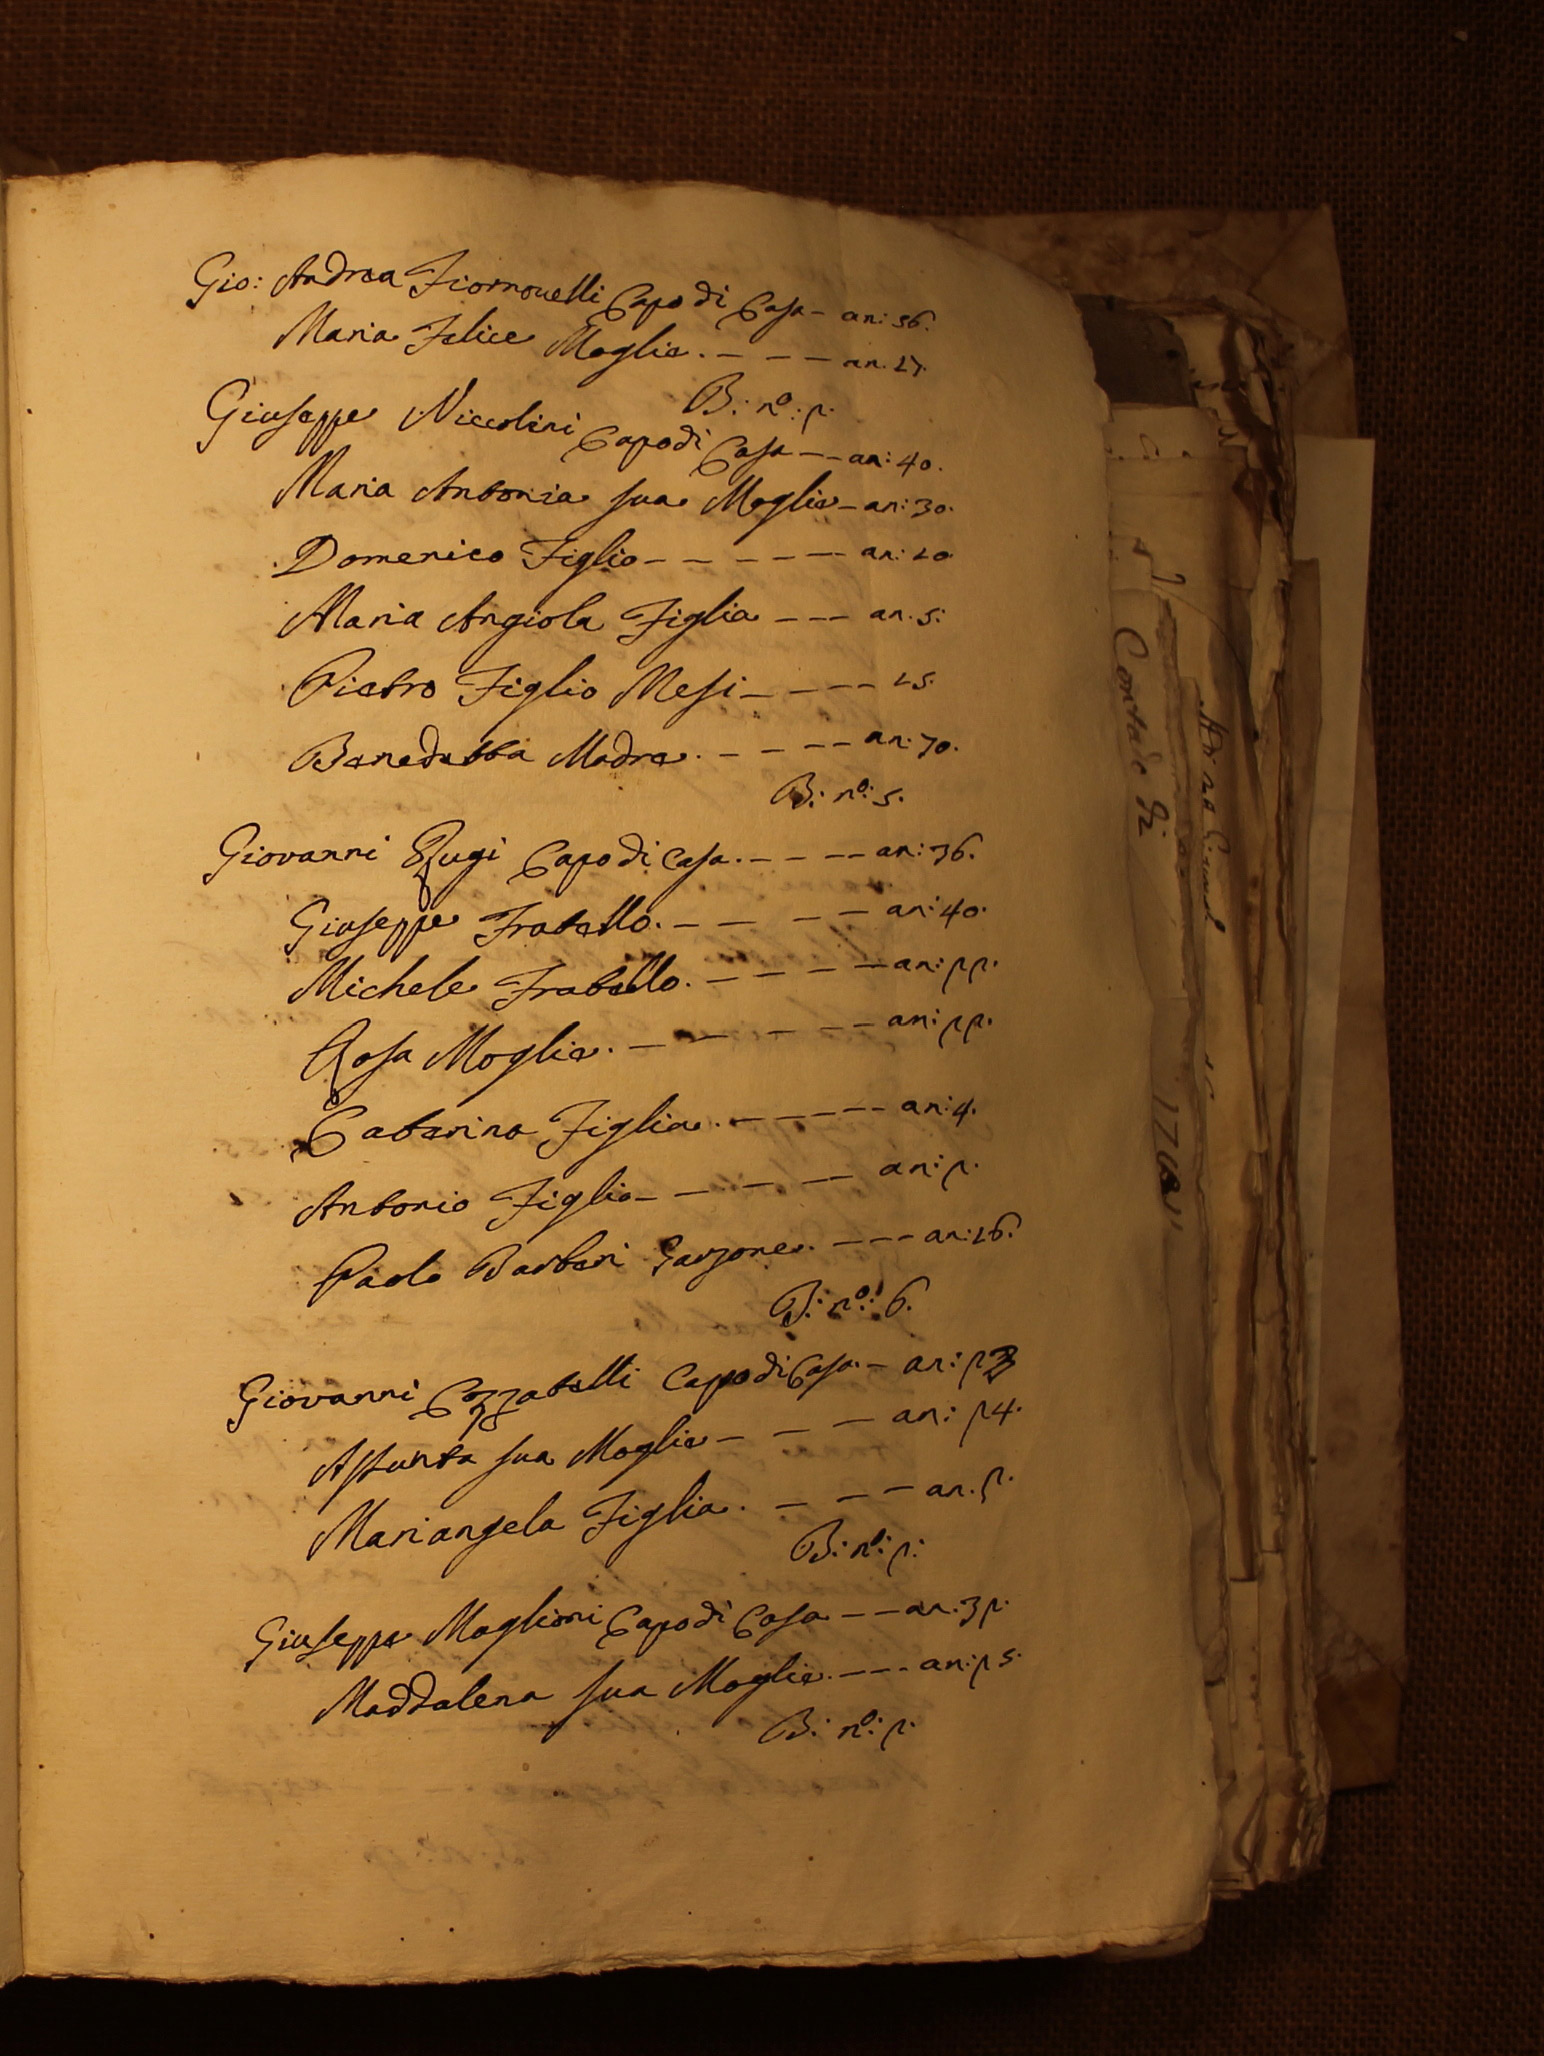 Gio: Andrea Fiornouelli Capo di Casa - an: 56.
Maria Felice Moglie. - - - an. 17.
B: nº: 2.
Giuseppe Niccolini Capo di Casa - - an: 40.
Maria Antonia sua Moglie - an: 30.
Domenico Figlio - - - - - - an: 10
Maria Angiola Figlia - - - an. 5:
Pietro Figlio Mesi - - - - 15.
Benedetta Madre. - - - - - an: 70.
B: nº: 5.
Giovanni Rugi Capo di Casa. - - - - an: 36.
Giuseppe Fratello. - - - - an: 40.
Michele Fratello. - - - - - an: 22.
Rosa Moglie. - - - - - an: 22.
Catarina Figlia. - - - - - - an: 4.
Antonio Figlio - - - - an: 2.
Paolo Barberi Garzone. - - - - an: 16.
B: nº: 6.
Giovanni Cozzatelli Capo di Casa. - an:
Assunta sua Moglie - - - an: 24.
Mariangela Figlia. - - - an. 2.
B: nº: 2:
Giuseppe Maglioni Capo di Casa - - an. 32.
Maddalena sua Moglie. - - - an: 25.
B: nº: 2.
Contado di